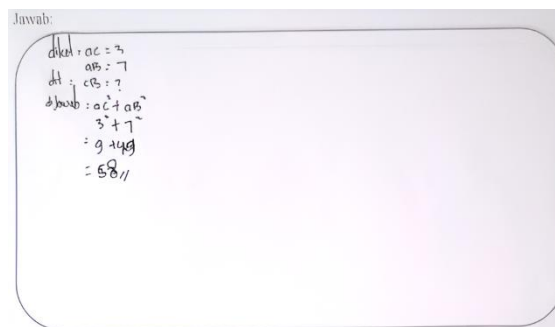 Jawab:
diket : ac = 3
aB = 7
dit : cB = ?
dJawab : ac² + aB²
3² + 7²
= 9 + 49
= 58 //